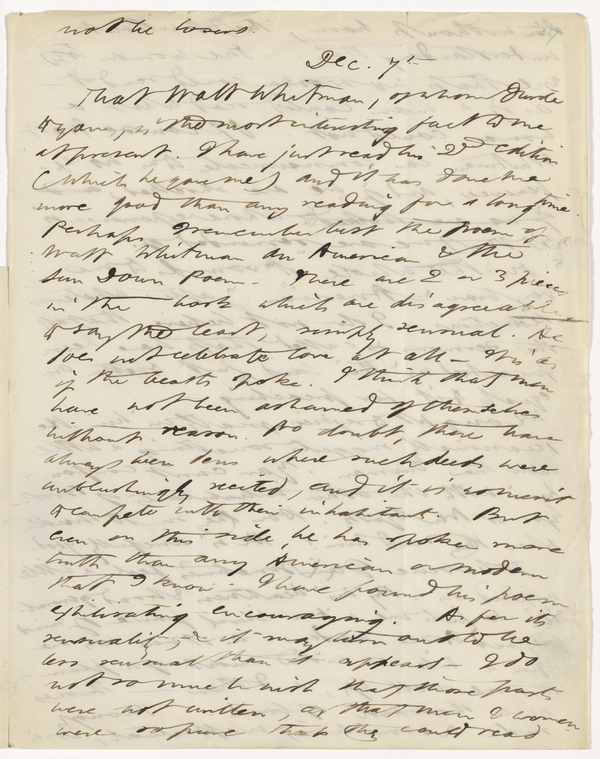 not be losers.
Dec. 7th
That Walt Whitman, of whom I wrote
to you, is the most interesting fact to me
at present. I have just read his 2nd edition
(which he gave me) and it has done me
more good than any reading for a long time.
Perhaps I remember best the Poem of
Walt Whitman an American & the
Sun Down Poem. There are 2 or 3 pieces
in the book which are disagreeable
to say the least, simply sensual. He
does not celebrate love at all - It is as
if the beasts spoke. I think that men
have not been ashamed of themselves
without reason. No doubt, there have
always been dens where such deeds were
unblushingly recited, and it is no merit
to compete with their inhabitants. But
even on this side he has spoken more
truth than any American or modern
that I know. I have found his poem
exhilirating encouraging. As for its
sensuality, & it may turn out to be
less sensual than it appeared - I do
not so much wish that those parts
were not written, as that men & women
were so pure that they could read